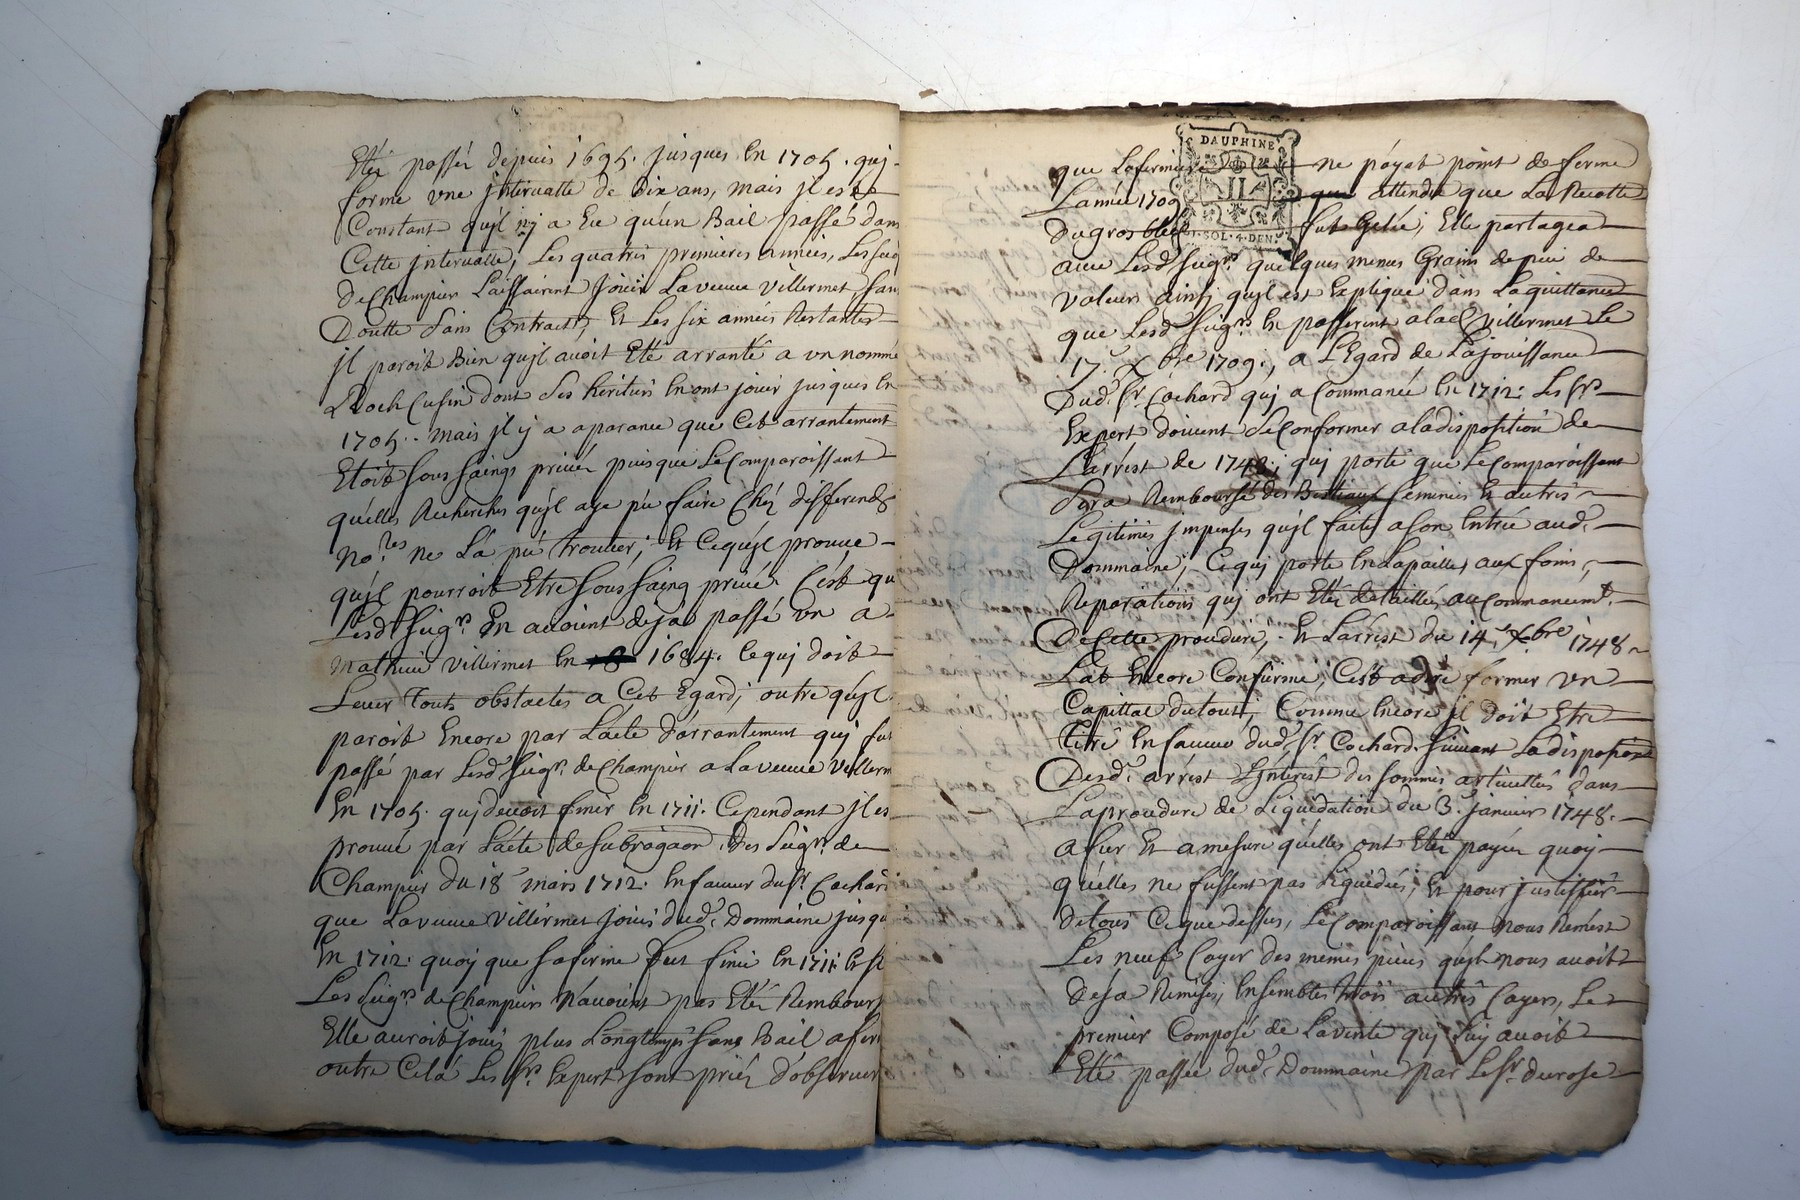 Eté passé depuis 1695. jusques En 1705. quj-
forme vne jntervalle de dix ans, mais jl est
Constant qujl nj a Eu qu'un Bail passé dans
Cette jntervalle, Les quatres premieres années, Les seig
de Champier Laissairent Jouir La veuue villermet sans
Doutte Sans Contract, Et Les six années Restantes
jl paroit Bien qujl auoit Eté arranté a vn nommé
Roch Cusin dont Ses heritiers En ont jouir jusques En
1705. mais jl y a aparance que Cet arrantement
Etoit sous saings priués puisque Le Comparoissant
quelles Recherches qujl aye pu faire Chés differends
No.res ne L'a pû trouuer; Et Ce qujl prouue-
qujl pourroit Etre sous saing priué. C'est qu
Lesd. Seig.rs En auoient deja passé vn a-
mathieu villermet En 1684. Ce quj doit
Leuer touts obstacles a Cet Egard; outre qujl
paroit Encore par L'acte d'arrantement quj fut
passé par Lesd. Seig.rs de Champier a La veuue villerm
En 1705. quj deuoit finir En 1711. Cependant jl es
prouué par L'acte de subrogaon des Seig.rs de
Champier du 18 mars 1712. En faueur du Sr. Cochard
que La veuue villermet jouis dud. Dommaine jusqu
En 1712. quoy que sa ferme fut finie En 1711. Et si
Les Seig.rs de Champier n'auoient pas Etés Rembours
Elle auroit jouis plus Longtemps sans Bail a ferm
outre Celà Les Srs. Expert sont priés d'obseruer
que La fermiere ne payat point de ferme
DAUPHINE
II
SOL. 4. DEN.
L'année 1709 attendu que La Recolte
du gros bled fut Gelée; Elle partagea
auec Lesd. Seig.rs quelques menus Grains de peu de
valeur ainsj qujl est Expliqué dans La quittance
que Lesd. Seig.rs En passerent a lad. villermet Le
17. Xbre 1709., a L'Egard de La jouissance
Dud. Sr. Cochard quj a Commancé En 1712. Les Srs.
Expert doiuent Se Conformer a la disposition de
L'arrest de 1748; quj porte que Le Comparoissant
Sera Remboursé des Bestiaux semences Et autres
Legitimes jmpenses qujl faites a son Entrée aud.
Dommaine; Ce quj porte En La pailles aux foins,
Reparations quj ont Etés detaillés au Commancemt.
De Cette proceduré, Et L'arrest du 14. Xbre 1748
L'at Encore Confirmé; C'est a dire former vn
Capittal du tout; Comme Encore jl doit Etre
titré En faueur dud. Sr. Cochard suiuant La disposition
Desd. arrest L'jnterest des sommes articullés dans
La procedure de Liquidation du 3. januier 1748.
a fur Et a mesure qu'elles ont Etés payés quoy
qu'elles ne fussent pas Liquidées; Et pour justiffier
de tout Ce que dessus, Le Comparoissant nous Remest
Les neuf Cayer des memes pieces qujl nous auoit
deja Remises, Ensembles trois autres Cayers, Le
premier Composé de La vente quj Luy auoit
Etté passée dud. Dommaine par Le Sr. ducrose